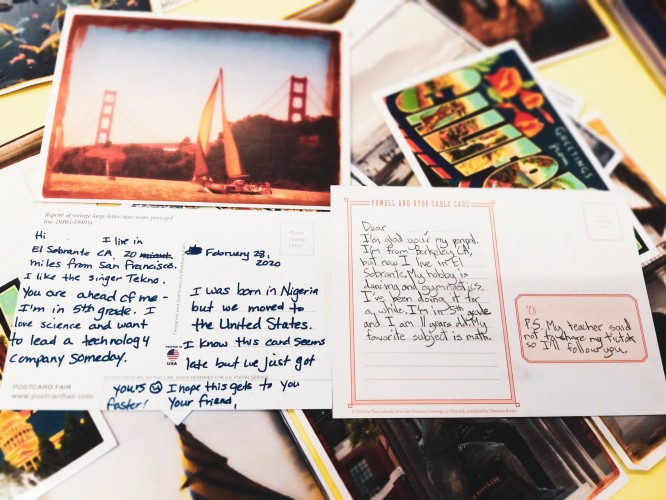 GREETINGS from
Reprint of vintage large letter state scene postcard
(era 1930's-1940's)
Place
Stamp
Here
Hi I live in
El Sobrante CA. 20
miles from San Francisco.
I like the singer Tekno.
You are ahead of me -
I'm in 5th grade. I
love science and want
to lead a technology
company someday.
POSTCARD FAIR
www.postcardfair.com
PRINTED IN
USA
February 28,
2020
I was born in Nigeria
but we moved to
the United States.
I know this card seems
late but we just got
yours I hope this gets to you
faster! Your friend,
POWELL AND HYDE CABLE CARS
Dear
I'm glad your my penpal.
I'm from Berkeley CA,
but now I live in El
Sobrante. My hobby is
dancing and gymnastics.
I've been doing it for
a while. I'm in 5th grade
and I am 11 years old. My
favorite subject is math.
TO
P.S. My teacher said
not to share my tictok
so I'll follow you.